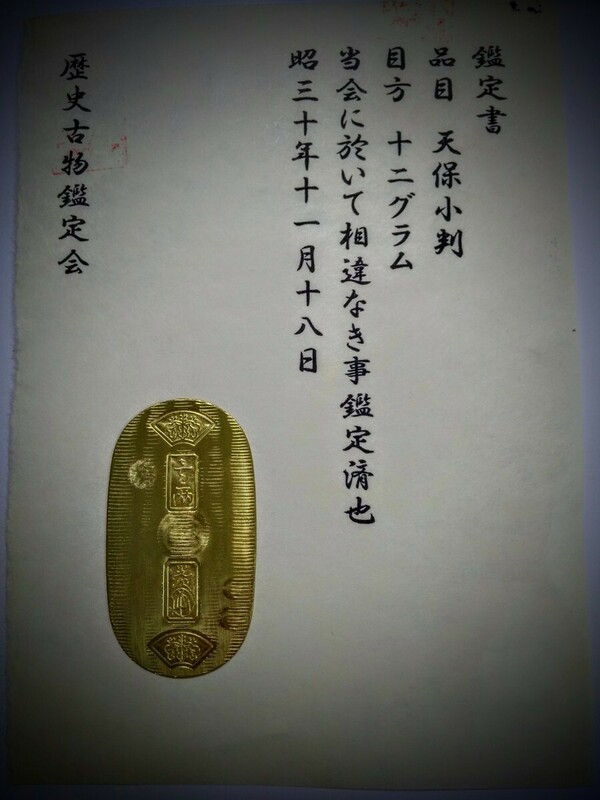 鑑定書
品目 天保小判
目方 十二グラム
当会に於いて相違なき事鑑定済也
昭三十年十一月十八日
歴史古物鑑定会